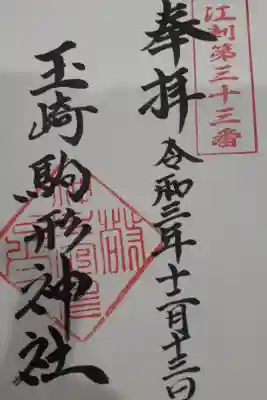 江刺第三十三番
奉拝
令和三年十一月十三日
玉崎駒形神社